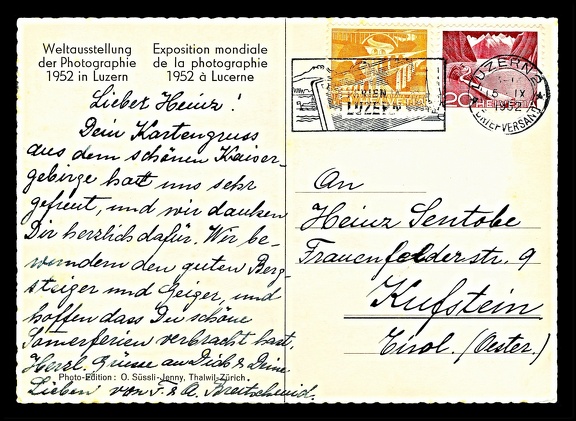 Weltausstellung
der Photographie
1952 in Luzern
Exposition mondiale
de la photographie
1952 à Lucerne
Lieber Heinz!
Dein Kartengruss
aus dem schönen Kaiser-
gebirge hat uns sehr
gefreut, und wir danken
Dir herzlich dafür. Wir be-
wundern den guten Berg-
steiger und Geiger, und
hoffen dass Du schöne
Somerferien verbracht hast.
Herzl. Grüsse an Dich & Deine
Lieben von F. & A. Breitschmid.
Photo-Edition: O. Süssli-Jenny, Thalwil-Zürich.
LUZERN
20 HELVETIA
LUZERN 2
15 IX
1952
BRIEFVERSAND
An
Heinz Sentobe
Frauenfelderstr. 9
Kufstein
Tirol. (Oester.)